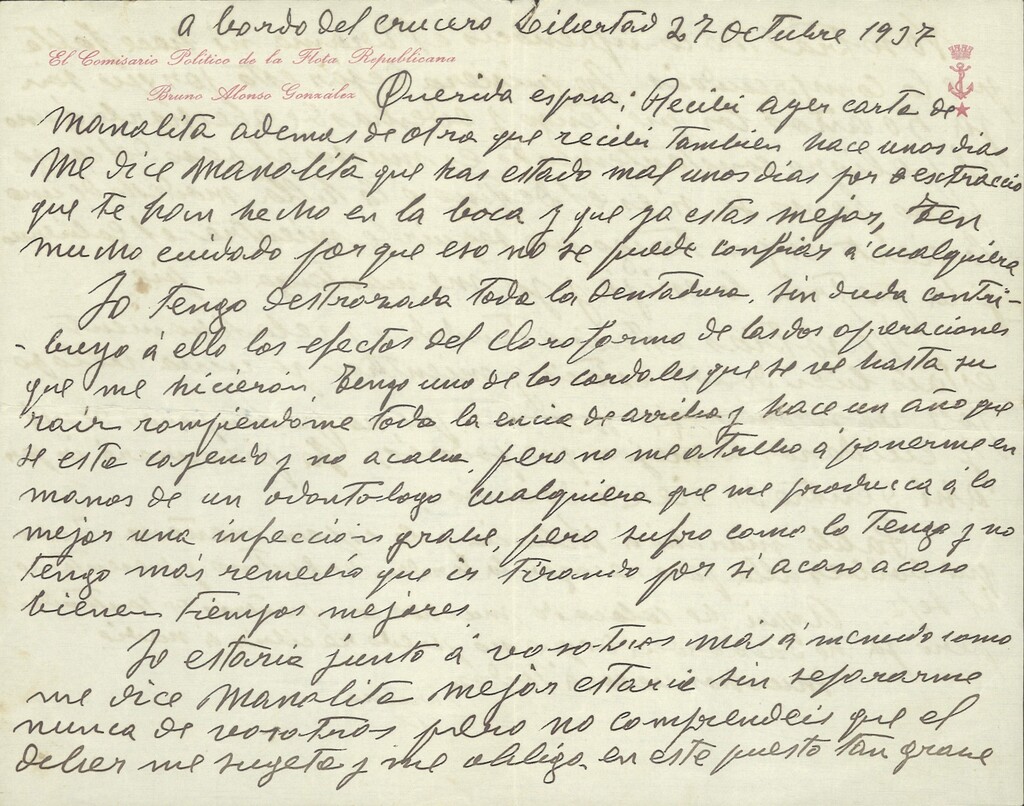 A bordo del crucero Libertad 27 Octubre 1937
El Comisario Político de la Flota Republicana
Bruno Alonso González
Querida esposa; Recibi ayer carta de
Manolita ademas de otra que recibi tambien hace unos dias
Me dice Manolita que has estado mal unos dias por extracció
que te han hecho en la boca y que ya estas mejor, Ten
mucho cuidado porque eso no se puede confiar á cualquiera
Yo tengo destrozada toda la dentadura, sin duda contri-
- buyo á ello los efectos del cloroformo de las dos operaciones
que me hicierón, Tengo uno de los cordales que se ve hasta su
raiz rompiendome toda la encia de arriba y hace un año que
se esta cayendo y no acaba, pero no me atrebo á ponerme en
manos de un odontologo cualquiera que me produzca á lo
mejor una infección grave, pero sufro como lo tengo y no
tengo más remedio que ir tirando por si acaso acaso
bienen tiempos mejores.
Yo estaria junto á vosotros más á menudo como
me dice Manolita mejor estaria sin separarme
nunca de vosotros pero no comprendeis que el
deber me sugeta y me obliga en este puesto tan grave